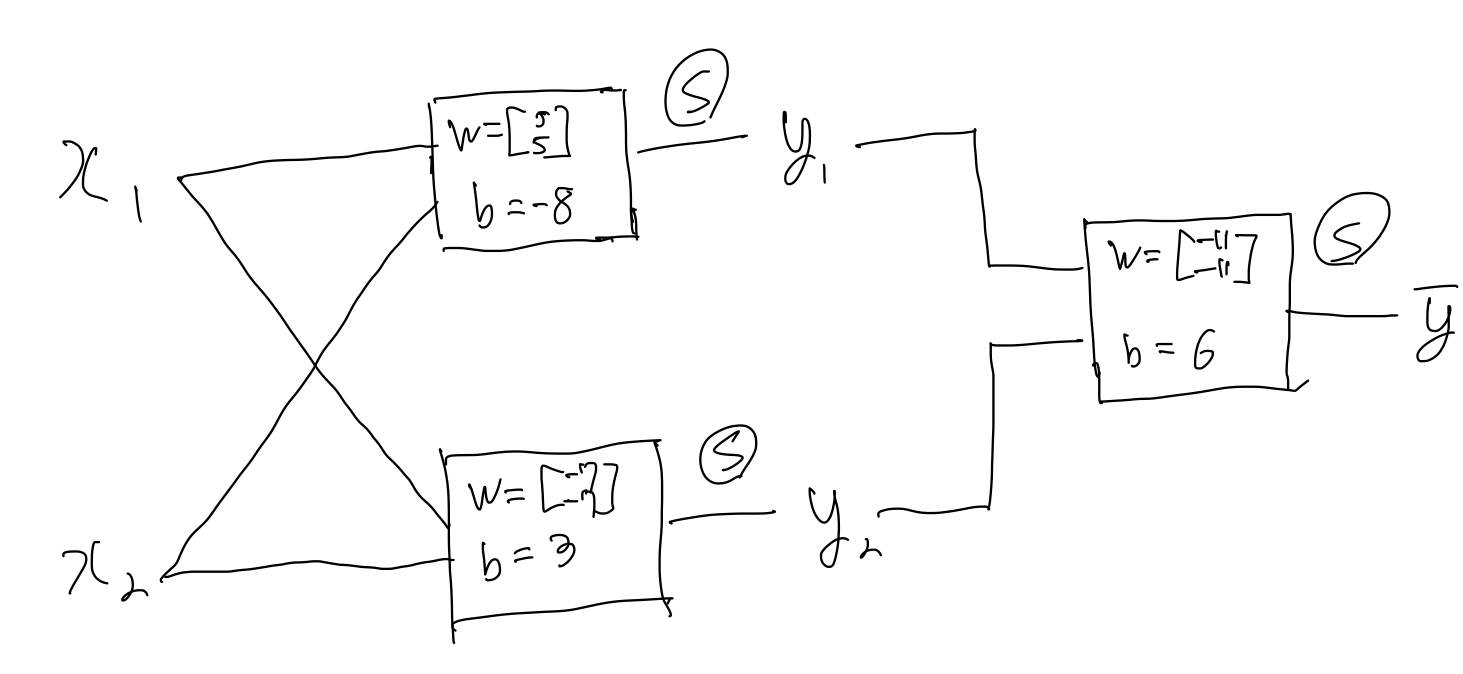 x₁
w=[5 5]
b=-8
S
y₁
x₂
w=[-7 -7]
b=3
S
y₂
w=[-11 -11]
b=6
S
ȳ